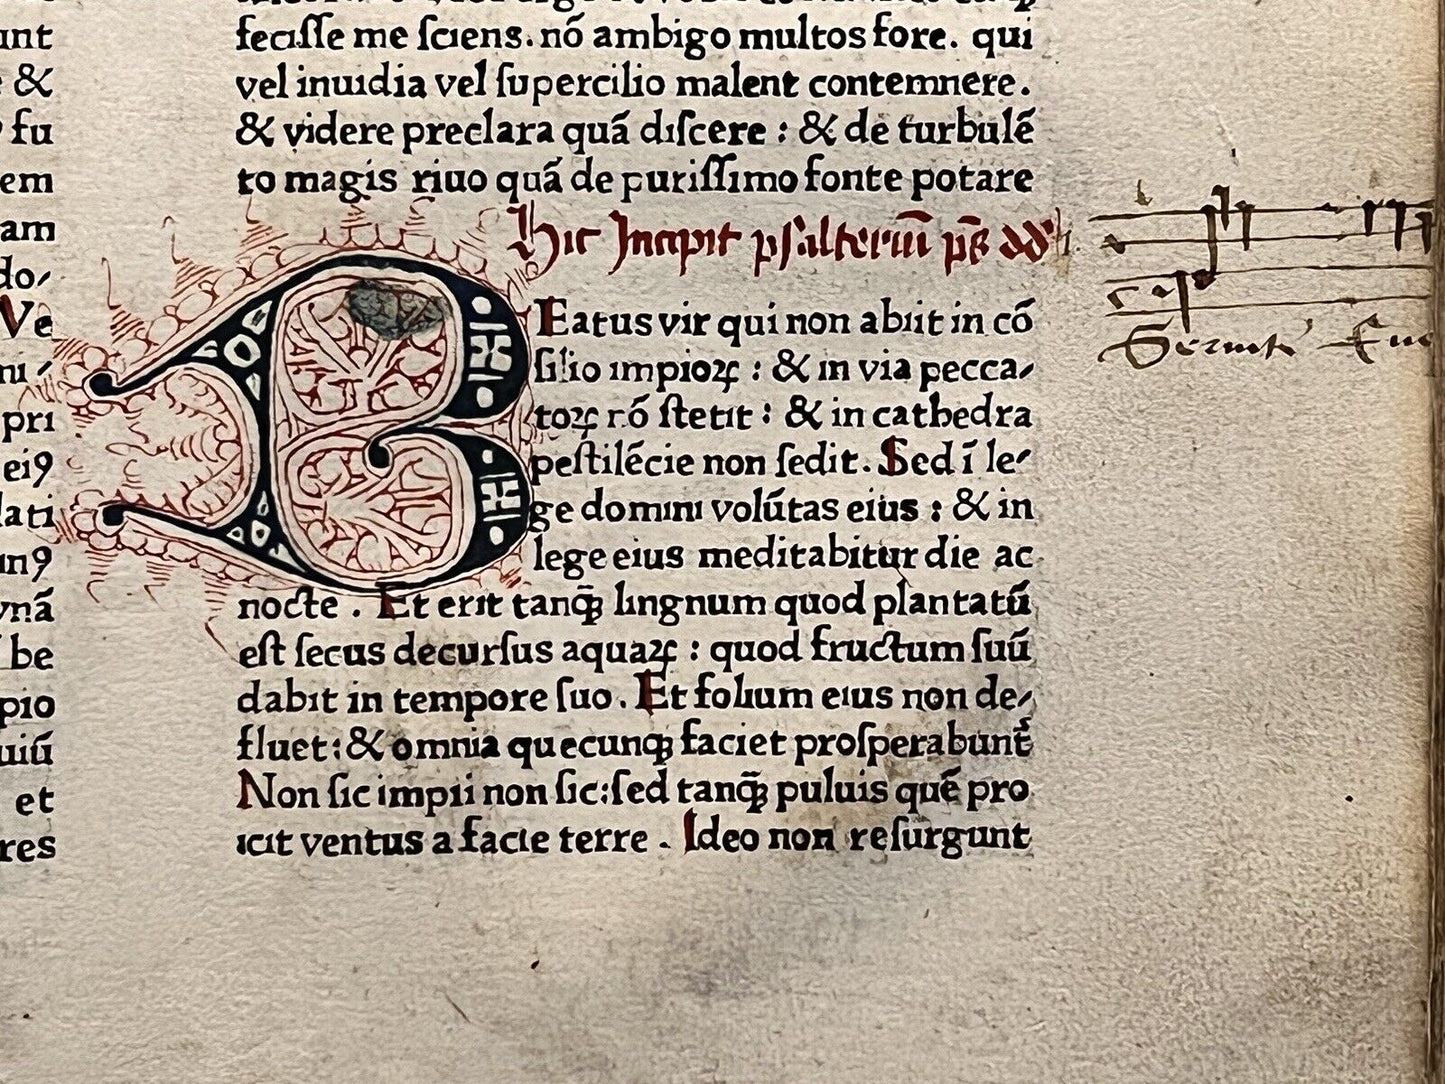 unt
&
fu
em
am
do/
Ve
ni/
pri
eiꝯ
lati
unꝯ
ynā
be
pio
uiū
et
res
feciſſe me ſciens. nō ambigo multos fore. qui
vel inuidia vel ſupercilio malent contemnere.
& videre preclara quā diſcere : & de turbulē
to magis riuo quā de puriſſimo fonte potare
Hic Incipit pſalteriū
BEatus vir qui non abiit in cō
ſilio impioꝝ : & in via pecca/
toꝝ nō ſtetit : & in cathedra
peſtilēcie non ſedit. Sed ī le/
ge domini volūtas eius : & in
lege eius meditabitur die ac
nocte . Et erit tanꝙ̄ lingnum quod plantatū
eſt ſecus decurſus aquaꝝ : quod fructum ſuū
dabit in tempore ſuo. Et folium eius non de/
fluet : & omnia quecunꝙ faciet proſperabunt̄
Non ſic impii non ſic : ſed tanꝙ̄ puluis quē pro
icit ventus a facie terre . Ideo non reſurgunt